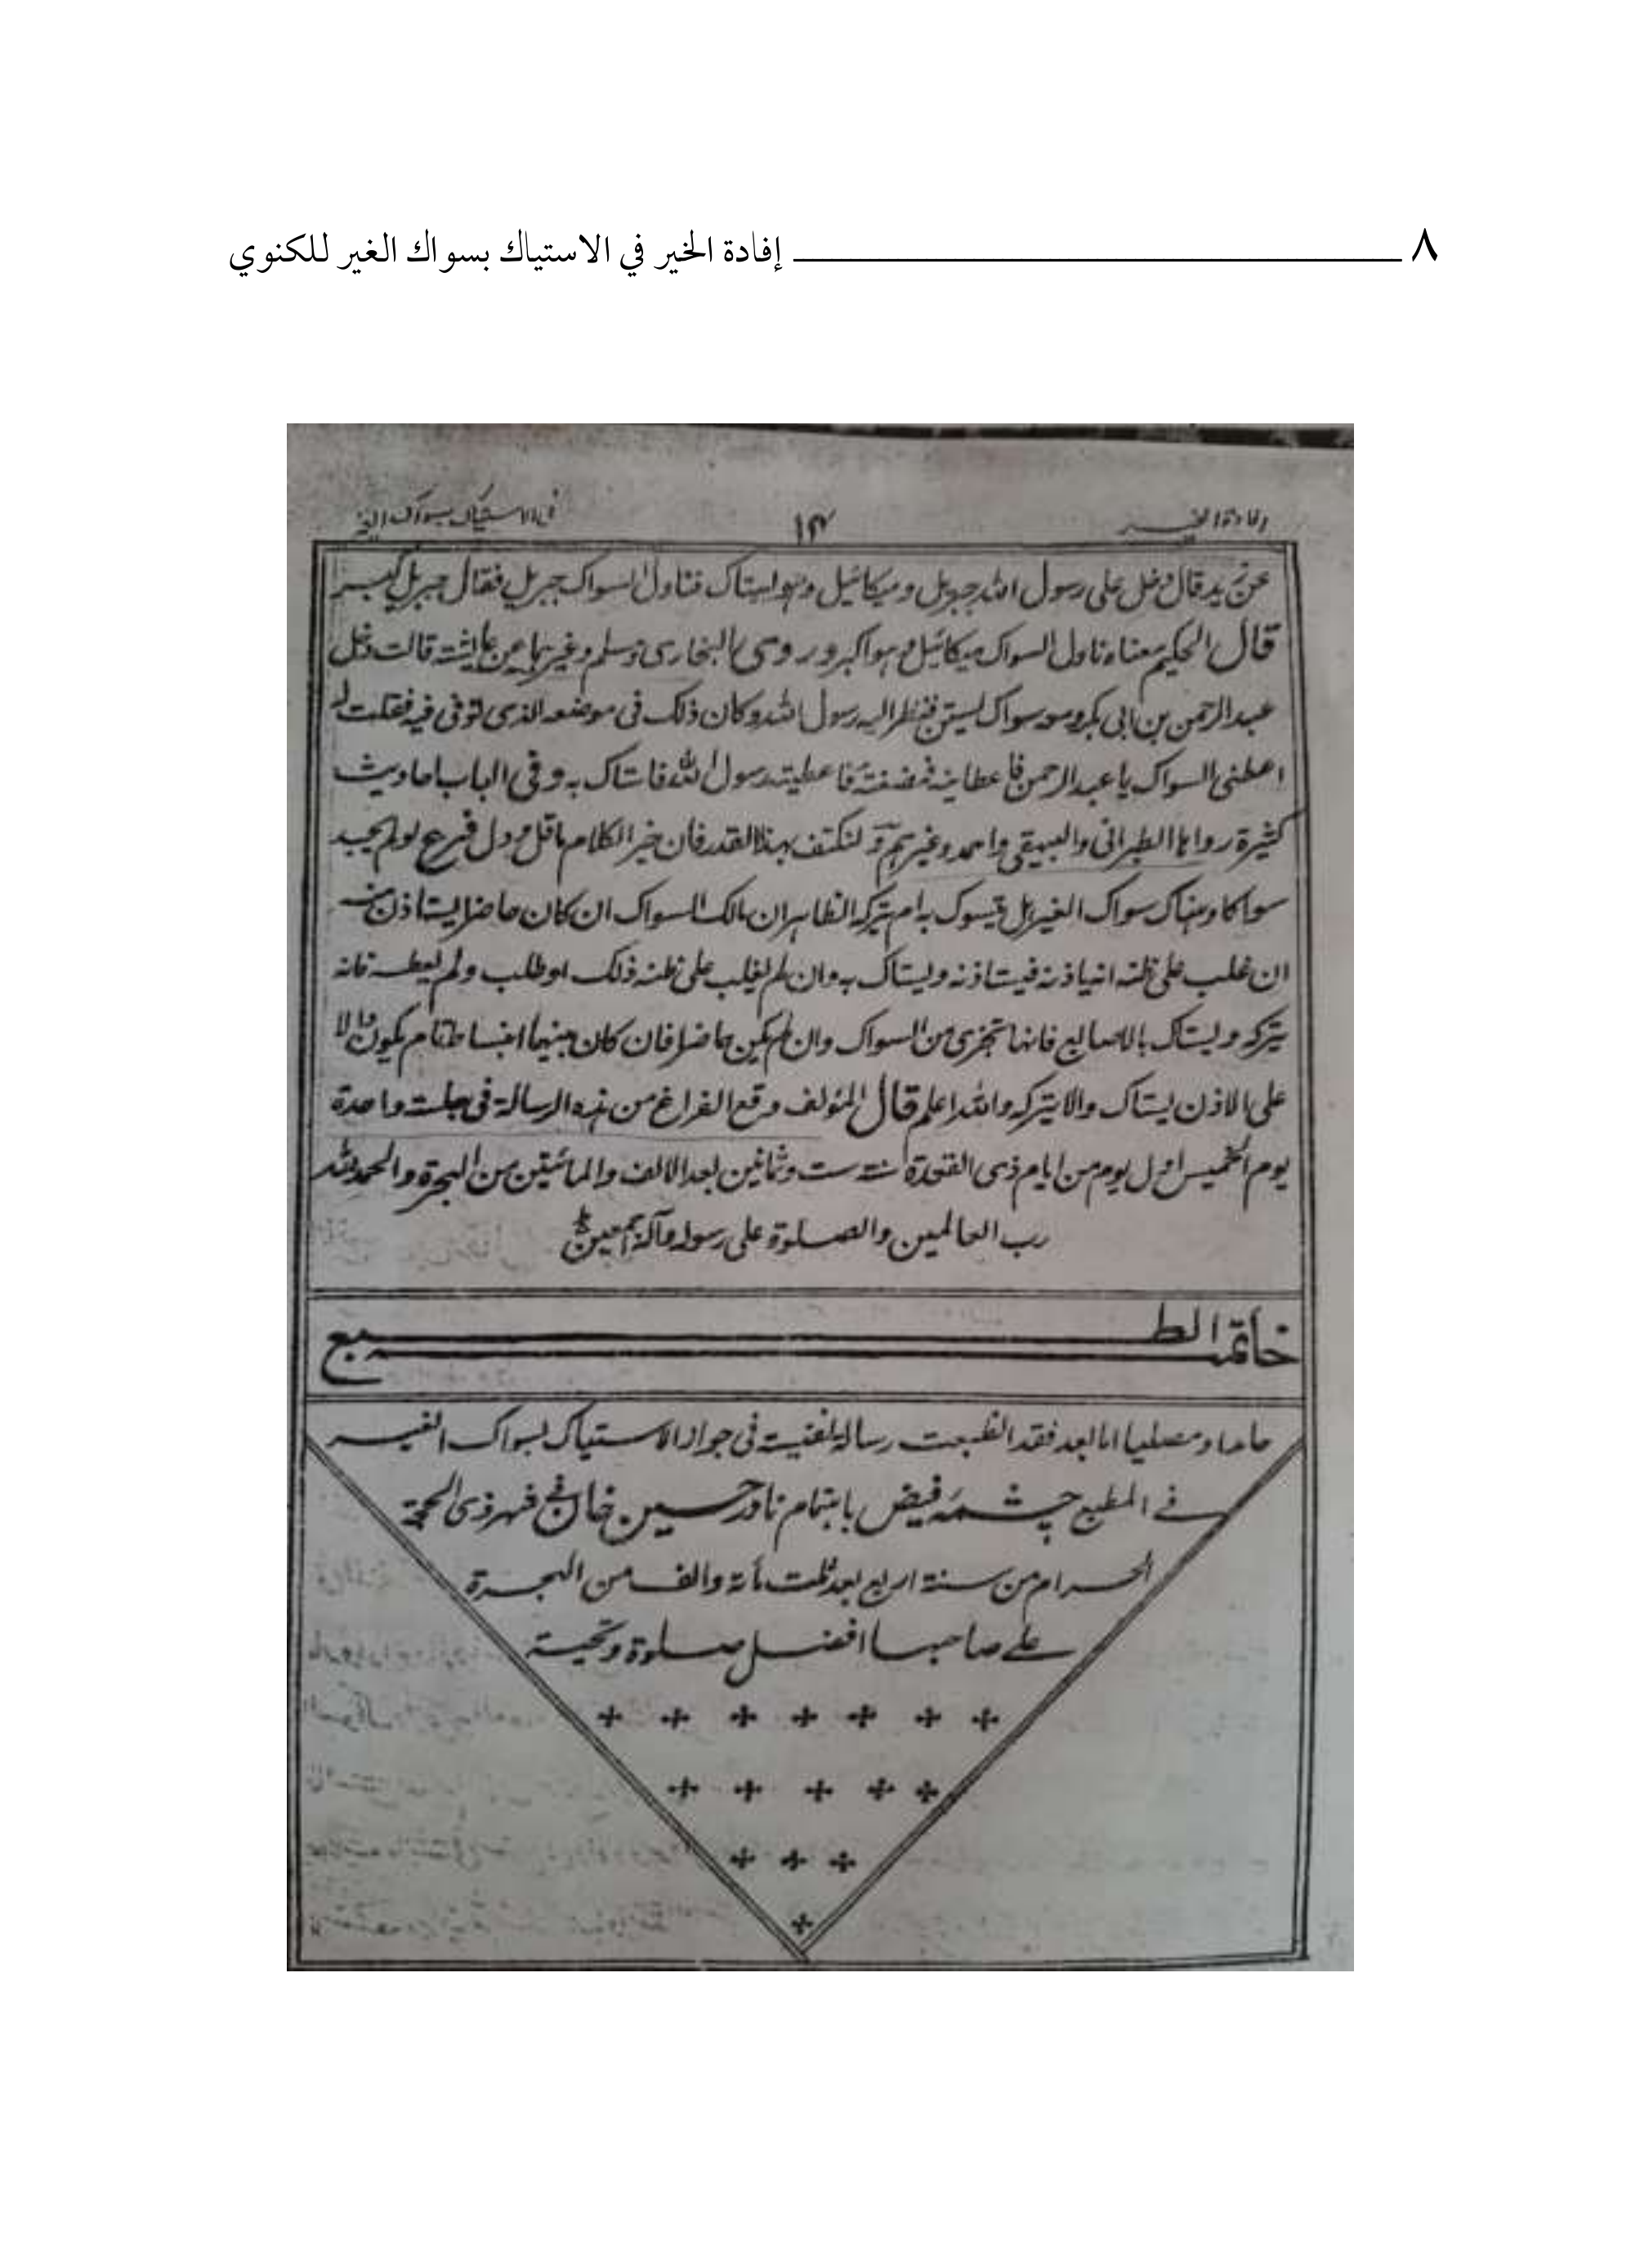 ٨ إفادة الخير في الاستياك بسواك الغير للكنوي
افادة الخير ١٤ في الاستياك بسواك الغير
عن يزيد قال دخل على رسول الله جبريل وميكائيل وهو يستاك فناول السواك جبريل فقال جبريل كبر
قال الحكيم معناه ناول السواك ميكائيل وهو اكبر وروى البخارى ومسلم وغيرهما عن عايشته قالت دخل
عبد الرحمن بن ابى بكر ومعه سواك ليستن فنظر اليه رسول الله وكان ذلك فى موضعه الذى توفى فيه فقلت له
اعطنى السواك يا عبد الرحمن فاعطانيه فمضغته فاعطيته رسول الله فاستاك به وفى الباب احاديث
كثيرة رواها الطبرانى والبيهقى واحمد وغيرهم ولنكتف بهذا القدر فان خير الكلام ما قل ودل فرع لو لم يجد
سواكا وهناك سواك الغير هل يتسوك به ام يتركه الظاهر ان مالك السواك ان كان حاضرا يستاذن منه
ان غلب على ظنه انه ياذنه فيستاذنه ويستاك به وان لم يغلب على ظنه ذلك او طلب ولم يعطه فانه
يتركه ويستاك بالاصابع فانها تجزى من السواك وان لم يكن حاضرا فان كان بينهما انبساط تام يكون دالا
على الاذن يستاك والا يتركه والله اعلم قال المؤلف وقع الفراغ من هذه الرسالة فى جلسة واحدة
يوم الخميس اول يوم من ايام ذى القعدة سنة ست وثمانين بعد الالف والمائتين من الهجرة والحمد لله
رب العالمين والصلوة على رسوله وآله اجمعين
خاتمة الطبع
حامدا ومصليا اما بعد فقد انطبعت رسالة نفيسة فى جواز الاستياك بسواك الغير
فے المطبع چشمهٔ فیض باهتمام نادر حسين خان فى شهر ذى الحجة
الحرام من سنة اربع بعد ثلث مأتة والف من الهجرة
علے صاحبها افضل صلوة وتحية